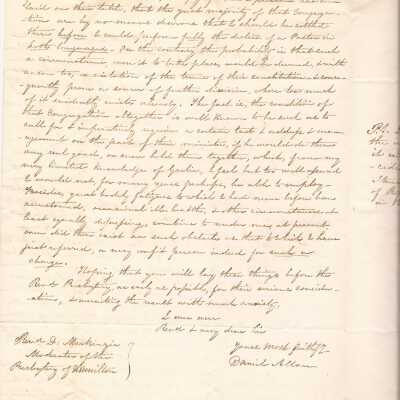 build on their tete, that the great majority of that Congrega-
tion are by no means desirous that he should be settled
there before he could perform fully the duties of a Pastor in
both languages. On the contrary the probability is that such
a circumstance, were it to take place, would be deemed, with
as one too, a violation of the terms of their constitution & conse-
quently prove a source of further division, where too much
of it evidently exists already. The fact is, the condition of
that Congregation altogether is well known to be such as to
call for & imperiously require a certain tact & address & man-
agement on the part of their minister, if he would do them
any real good, or even hold them together, which, from my
very limited knowledge of Gaelic, I feel but too well assured
I would not, for many years perhaps, be able to employ.
Besides, great bodily fatigue to which I had never before been
accustomed, occasional ill health, & other circumstances at
least equally distressing, continue to render me, at present,
even did there exist no such obstacles as that to which I have
just referred, a very unfit person indeed for such a
charge.
Hoping that you will lay these things before the
Rev'd Presbytery as early as possible, for their serious consider-
ation, & awaiting the result with much anxiety,
I am ever
Rev'd & very dear Sir
Yours most faithfully
Daniel Allan
Rev'd D. Mackenzie
Moderator of the
Presbytery of Hamilton
P.S.
the